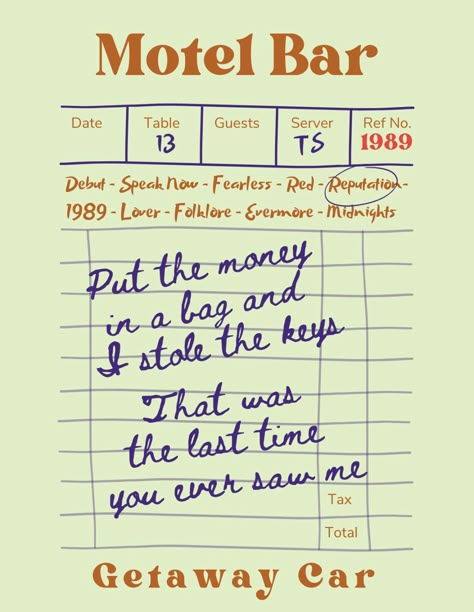 Motel Bar
Date Table Guests Server Ref No.
13 TS 1989
Debut - Speak Now - Fearless - Red - Reputation -
1989 - Lover - Folklore - Evermore - Midnights
Put the money
in a bag and
I stole the keys
That was
the last time
you ever saw me
Tax
Total
Getaway Car